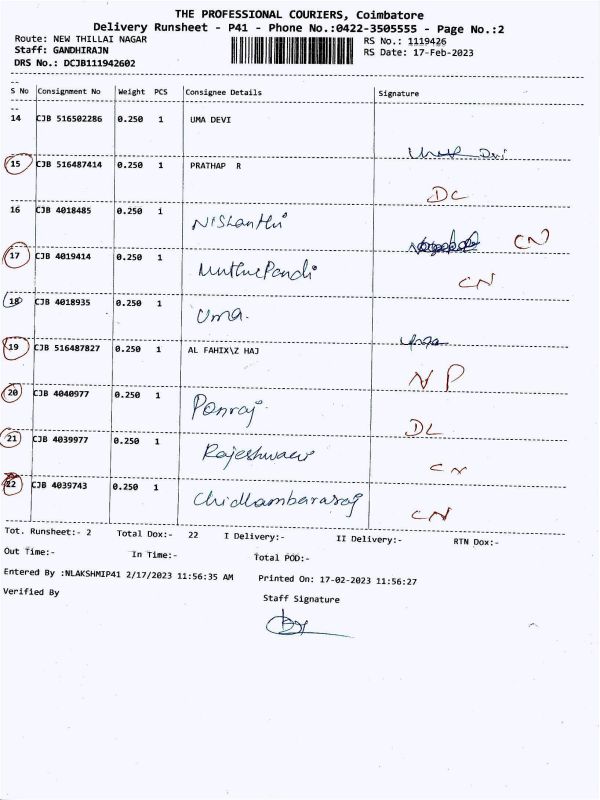 THE PROFESSIONAL COURIERS, Coimbatore
Delivery Runsheet - P41 - Phone No.:0422-3505555 - Page No.:2
Route: NEW THILLAI NAGAR RS No.: 1119426
Staff: GANDHIRAJN RS Date: 17-Feb-2023
DRS No.: DCJB111942602
S No Consignment No Weight PCS Consignee Details Signature
14 CJB 516502286 0.250 1 UMA DEVI
15 CJB 516487414 0.250 1 PRATHAP R DC
16 CJB 4018485 0.250 1 Nishanthi CN
17 CJB 4019414 0.250 1 MuthuPandi CN
18 CJB 4018935 0.250 1 Uma.
19 CJB 516487827 0.250 1 AL FAHIX\Z HAJ NP
20 CJB 4040977 0.250 1 Ponraj. DL
21 CJB 4039977 0.250 1 CN
22 CJB 4039743 0.250 1 Chidhambararaj CN
Tot. Runsheet:- 2 Total Dox:- 22 I Delivery:- II Delivery:- RTN Dox:-
Out Time:- In Time:- Total POD:-
Entered By :NLAKSHMIP41 2/17/2023 11:56:35 AM Printed On: 17-02-2023 11:56:27
Verified By Staff Signature